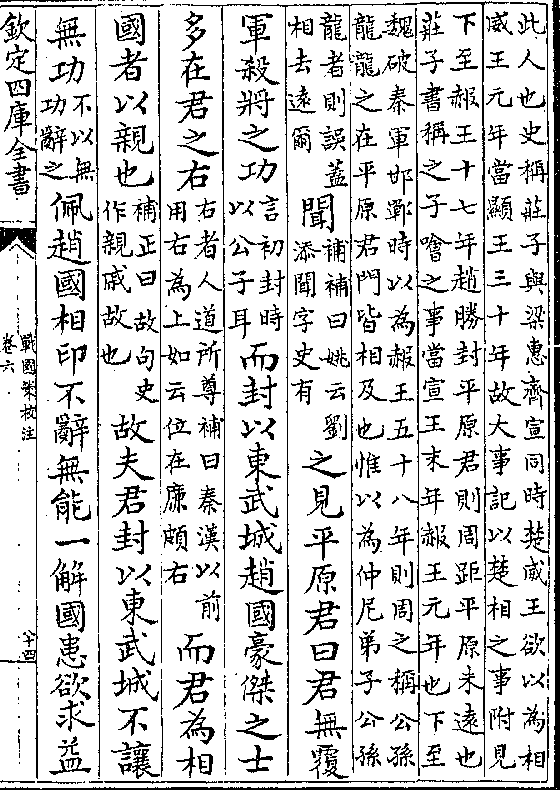 此人也史稱莊子與梁惠齊宣同時楚威王欲以為相
威王元年當顯王三十年故大事記以楚相之事附見
下至赧王十七年趙勝封平原君則周距平原未遠也
莊子書稱之子噲之事當宣王末年赧王元年也下至
魏破秦軍邯鄲時以為赧王五十八年則周之稱公孫
龍龍之在平原君門皆相及也惟以為仲尼弟子公孫
龍者則誤蓋相去遠爾聞補補曰姚云劉添聞字史有之見平原君曰君無覆
軍殺將之功言初封時以公子耳而封以東武城趙國豪傑之士
多在君之右右者人道所尊補曰秦漢以前用右為上如云位在廉頗右而君為相
國者以親也補正曰故句史作親戚故也故夫君封以東武城不讓
無功不以無功辭之佩趙國相印不辭無能一解國患欲求益
欽定四庫全書
戰國策校注
卷六